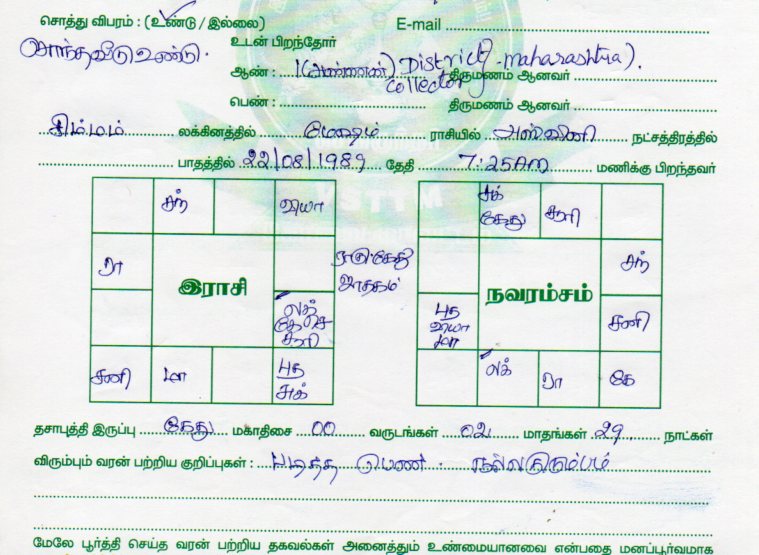 சொத்து விபரம் : (உண்டு / இல்லை) E-mail
சொந்தவீடு உண்டு. உடன் பிறந்தோர்
ஆண் : 1 (அண்ணன்) District Collector (Maharashtra). திருமணம் ஆனவர்
பெண் : திருமணம் ஆனவர்
சிம்மம் லக்கினத்தில் மேஷம் ராசியில் அஸ்வினி நட்சத்திரத்தில்
பாதத்தில் 22/08/1989 தேதி 7:25AM மணிக்கு பிறந்தவர்
சந் வியா
சுக் கேது சூரி
ரா இராசி ராகுகேது ஜாதகம் நவரம்சம் சந்
லக் கே செ சூரி
புத வியா மா சனி
சனி மா புத சுக்
லக் ரா கே
தசாபுத்தி இருப்பு கேது மகாதிசை 00 வருடங்கள் 02 மாதங்கள் 29 நாட்கள்
விரும்பும் வரன் பற்றிய குறிப்புகள் : படித்த பெண் . நல்லகுடும்பம்
மேலே பூர்த்தி செய்த வரன் பற்றிய தகவல்கள் அனைத்தும் உண்மையானவை என்பதை மனப்பூர்வமாக